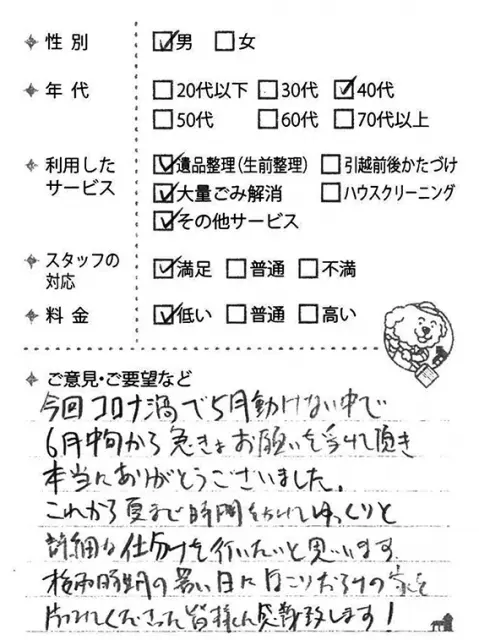 性別 ☑男 ☐女
年代 ☐20代以下 ☐30代 ☑40代
☐50代 ☐60代 ☐70代以上
利用したサービス ☑遺品整理(生前整理) ☐引越前後かたづけ
☑大量ごみ解消 ☐ハウスクリーニング
☑その他サービス
スタッフの対応 ☑満足 ☐普通 ☐不満
料金 ☑低い ☐普通 ☐高い
ご意見・ご要望など
今回コロナ渦で5月動けない中で
6月中旬から急きょお願いを受けて頂き
本当にありがとうございました。
これから夏まで時間をかけてゆっくりと
詳細な仕分けを行いたいと思います
梅雨時期の暑い日にほこりだらけの家を
片づけてくださった皆様に感謝致します!